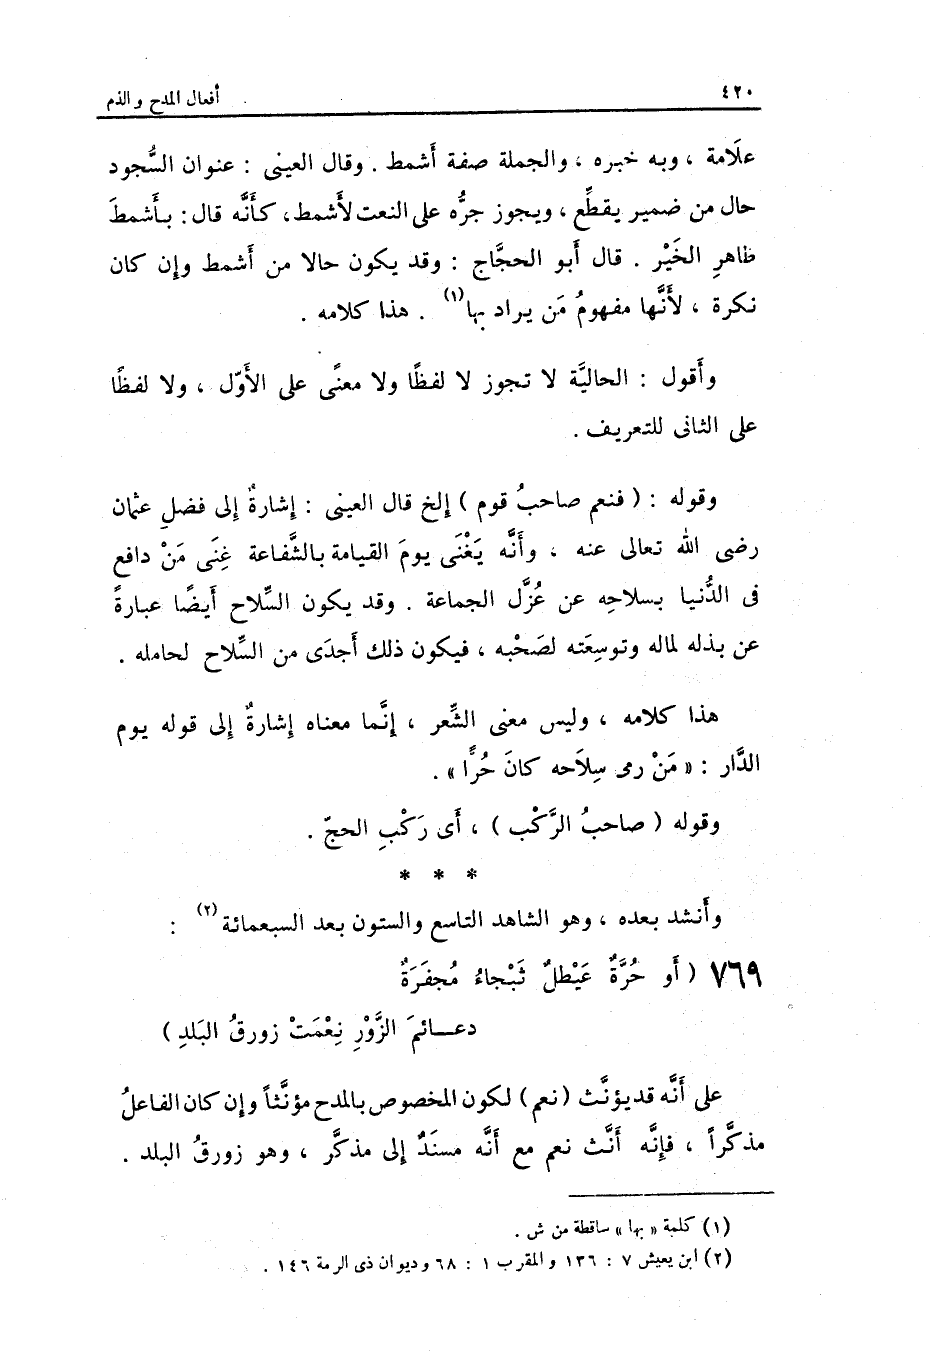 ٤٢٠
أفعال المدح والذم
علَامة ، وبه خبره ، والجملة صفة أشمط . وقال العينى : عنوان السُّجود
حال من ضمير يقطِّع ، ويجوز جرُّه على النعت لأشمط، كأنَّه قال : بأشمطَ
ظاهرِ الخَيْر . قال أبو الحجَّاج : وقد يكون حالا من أشمط وإن كان
نكرة ، لأنَّها مفهومُ مَن يراد بها(١) . هذا كلامه .
وأقول : الحاليَّة لا تجوز لا لفظًا ولا معنًى على الأوّل ، ولا لفظًا
على الثانى للتعريف .
وقوله : ( فنعم صاحبُ قوم ) إلخ قال العينى : إشارةٌ إلى فضلِ عثمان
رضى الله تعالى عنه ، وأنَّه يَغْنَى يومَ القيامة بالشَّفاعة غِنَى مَنْ دافع
فى الدُّنيا بسلاحِه عن عُزَّل الجماعة . وقد يكون السِّلاح أيضًا عبارةً
عن بذله لماله وتوسِعَته لصَحْبه ، فيكون ذلك أجدَى من السِّلاح لحامله .
هذا كلامه ، وليس معنى الشِّعر ، إنَّما معناه إشارةٌ إلى قوله يوم
الدَّار : « مَنْ رمى سِلاَحه كانَ حُرًّا » .
وقوله ( صاحبُ الرَّكْب ) ، أى رَكْبِ الحجّ .
* * *
وأنشد بعده ، وهو الشاهد التاسع والستون بعد السبعمائة(٢) :
٧٦٩ ( أو حُرَّةٌ عَيْطلٌ ثَبْجاءُ مُجفَرَةٌ
دعـــائمَ الزَّوْرِ نِعْمَتْ زورقُ البَلدِ )
على أنَّه قد يؤنَّث ( نعم ) لكون المخصوص بالمدح مؤنَّثاً وإن كان الفاعلُ
مذكَّراً ، فإنَّه أنَّث نعم مع أنَّه مسنَدٌ إلى مذكَّر ، وهو زورقُ البلد .
(١) كلمة « بها » ساقطة من ش .
(٢) ابن يعيش ٧ : ١٣٦ والمقرب ١ : ٦٨ وديوان ذى الرمة ١٤٦ .